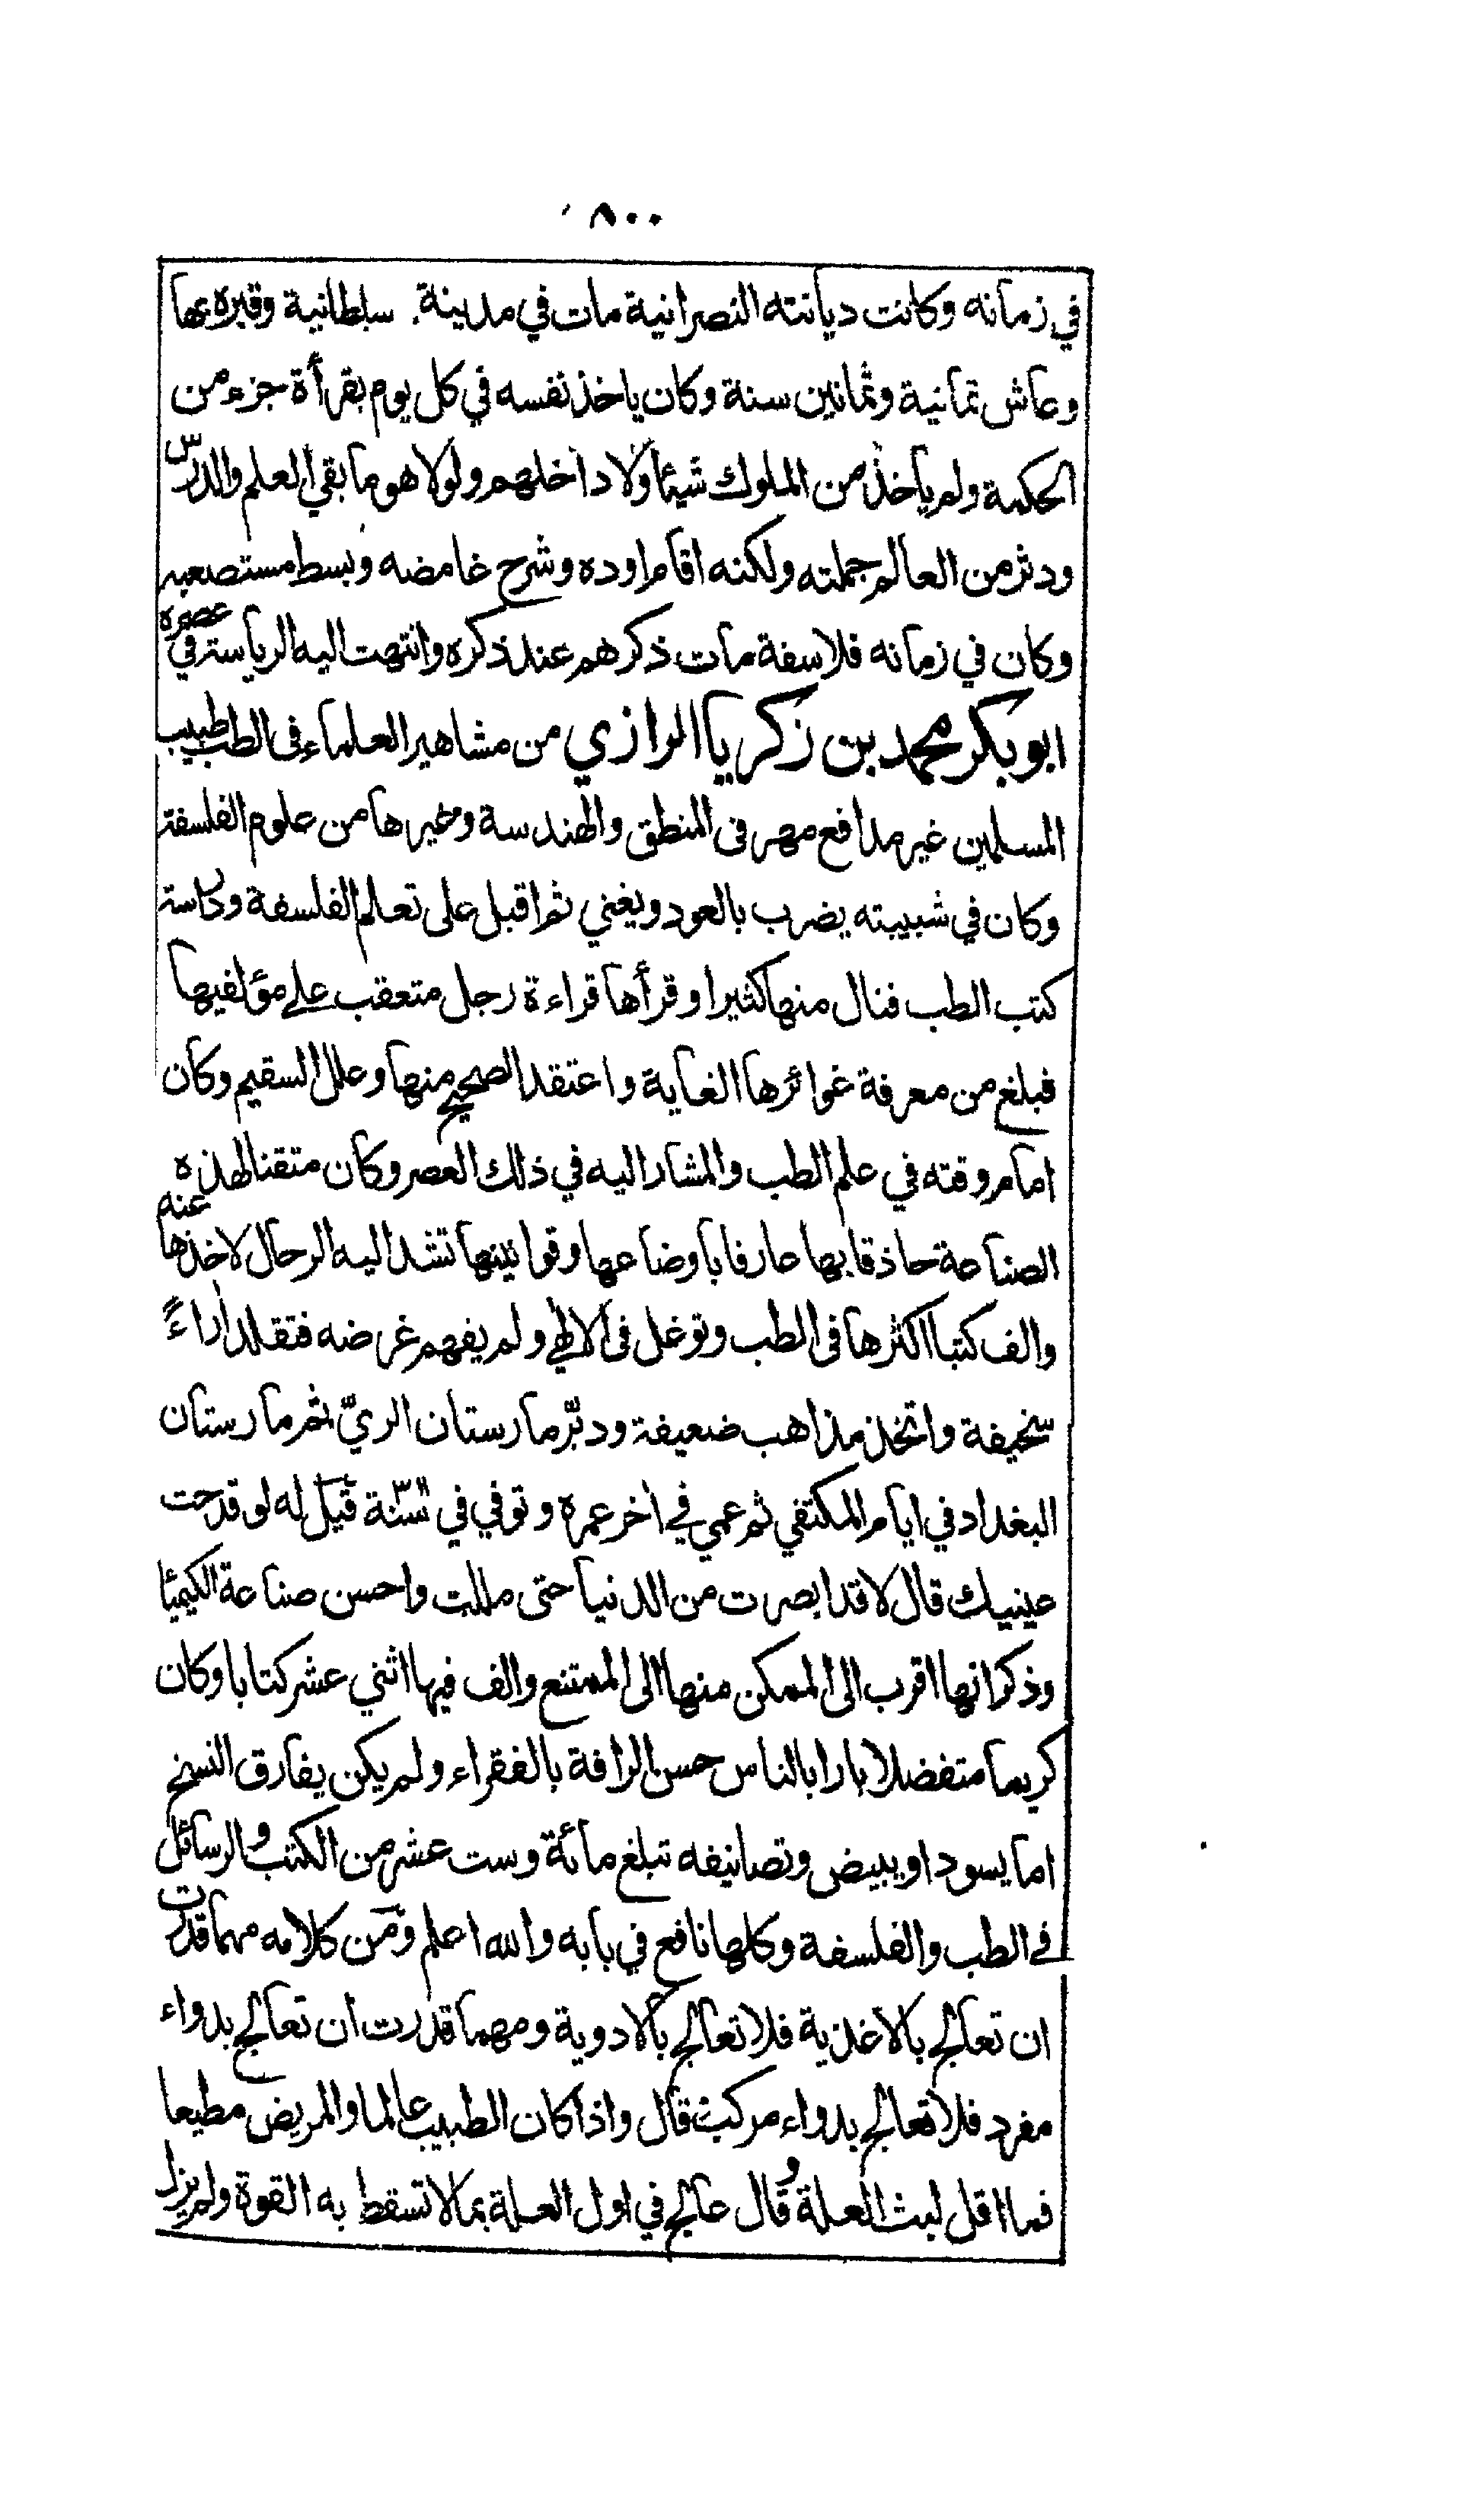 ٨٠٠
في زمانه وكانت ديانته النصرانية مات في مدينة سلطانية وقبره بها
وعاش ثمانية وثمانين سنة وكان ياخذ نفسه في كل يوم بقرأة جزء من
الحكمة ولم ياخذ من الملوك شيئا ولا داخلهم ولولا هو ما بقي العلم والدرس
ودثر من العالم جملته ولكنه اقام اوده وشرح غامضه وبسط مستصعبه
وكان في زمانه فلاسفة مات ذكرهم عند ذكره وانتهت اليه الرياسة في عصره
ابو بكر محمد بن زكريا الرازي من مشاهير العلماء في الطب طبيب
المسلمين غير مدافع مهر في المنطق والهندسة وغيرها من علوم الفلسفة
وكان في شبيبته يضرب بالعود ويغني ثم اقبل على تعلم الفلسفة ودراسة
كتب الطب فنال منها كثيرا وقرأها قراءة رجل متعقب على مؤلفيها
فبلغ من معرفة غوائرها الغاية واعتقد الصحيح منها وعلل السقيم وكان
امام وقته في علم الطب والمشار اليه في ذلك العصر وكان متقنا لهذه
الصناعة حاذقا بها عارفا باوضاعها وقوانينها تشد اليه الرحال لاخذها عنه
والف كتبا اكثرها في الطب وتوغل في الالهي ولم يفهم غرضه فتقلد اراءً
سخيفة واتخذ مذاهب ضعيفة ودبّر مارستان الريّ ثم مارستان
البغداد في ايام المكتفي ثم عمي في اخر عمره وتوفي في سنة قيل له لو قدحت
عينيك قال لا قد ابصرت من الدنيا حتى مللت واحسن صناعة الكيميا
وذكر انها اقرب الى الممكن منها الى الممتنع والف فيها اثني عشر كتابا وكان
كريما متفضلا بارا بالناس حسن الرافة بالفقراء ولم يكن يفارق النسخ
اما يسود او يبيض وتصانيفه تبلغ مائة وست عشر من الكتب والرسائل
في الطب والفلسفة وكلها نافع في بابه والله اعلم ومن كلامه مهما قدرت
ان تعالج بالاغذية فلا تعالج بالادوية ومهما قدرت ان تعالج بدواء
مفرد فلا تعالج بدواء مركب قال واذا كان الطبيب عالما والمريض مطيعا
فما اقل لبث العلة وقال عالج في اول العلة بما لا تسقط به القوة ولم يزل